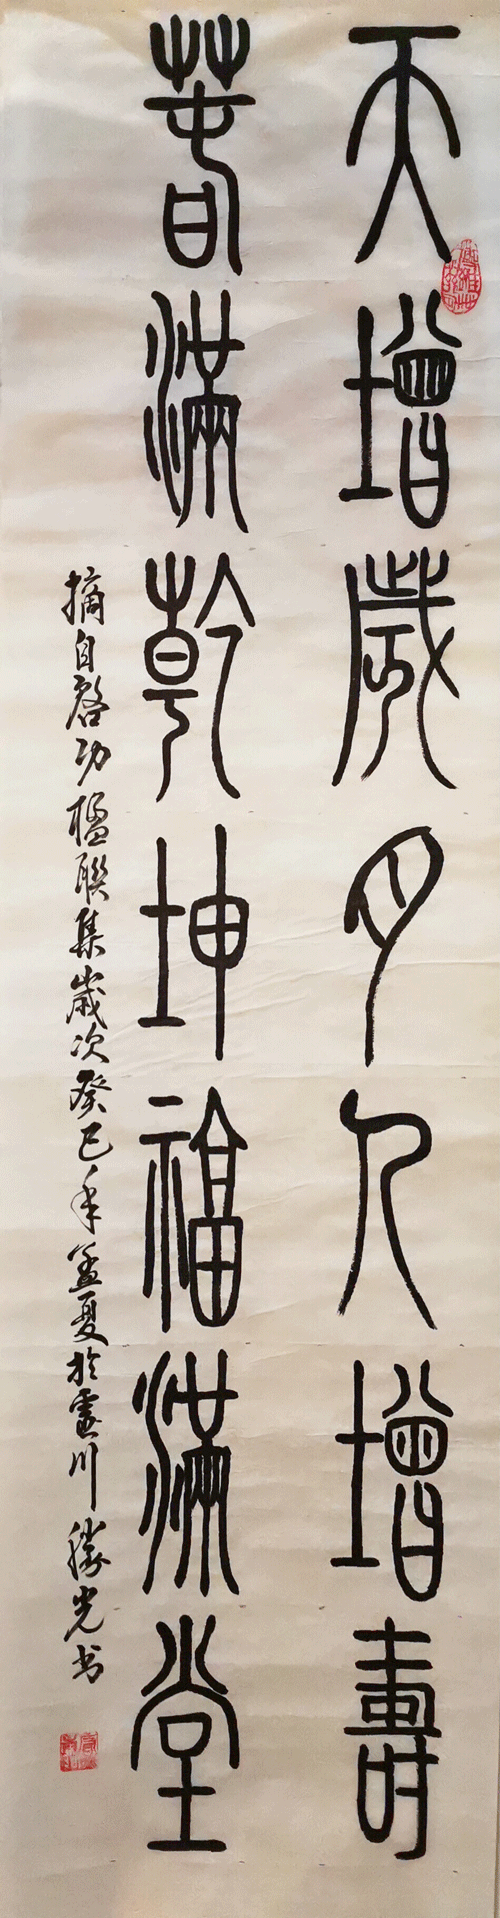 天增歲月人增壽
萅滿乾坤福滿堂
摘自啓功楹聯集歲次癸巳年孟夏於靈川勝光书